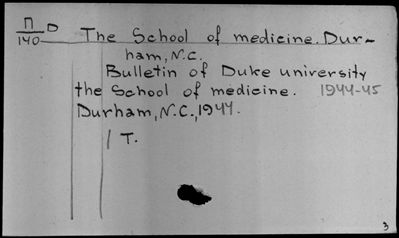 П/140 D The School of medicine. Dur-
ham, N.C.
Bulletin of Duke university
the School of medicine. 1944-45
Durham, N.C., 1944.
1 T.
3